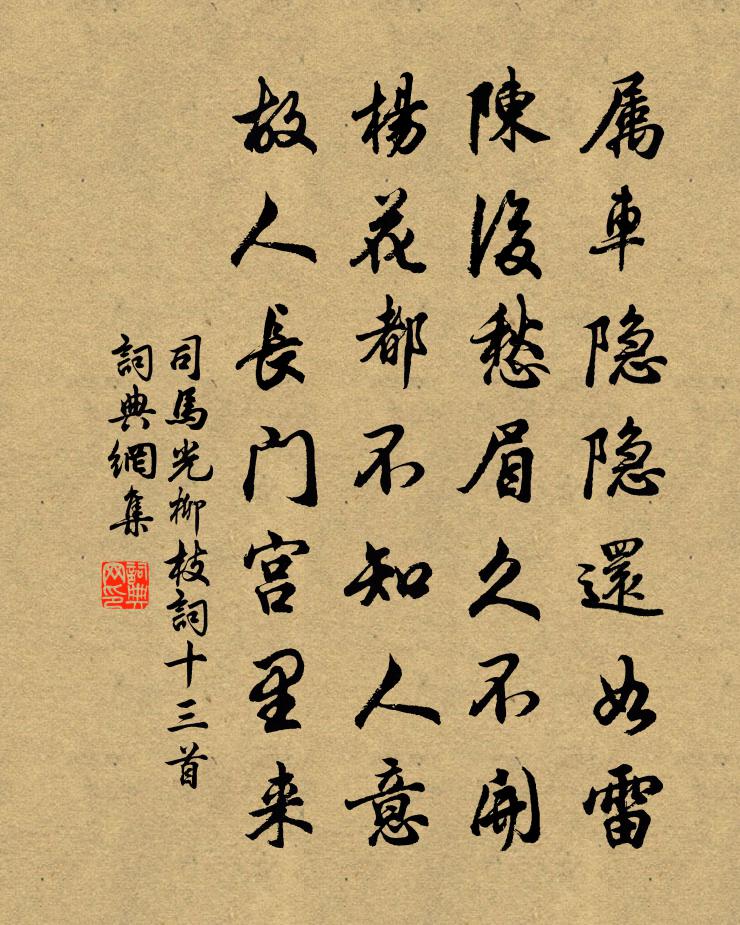 属車隐隐還如雷
陳後愁眉久不開
楊花都不知人意
故人長门宫里来
司馬光柳枝詞十三首
詞典網集
詞典网印